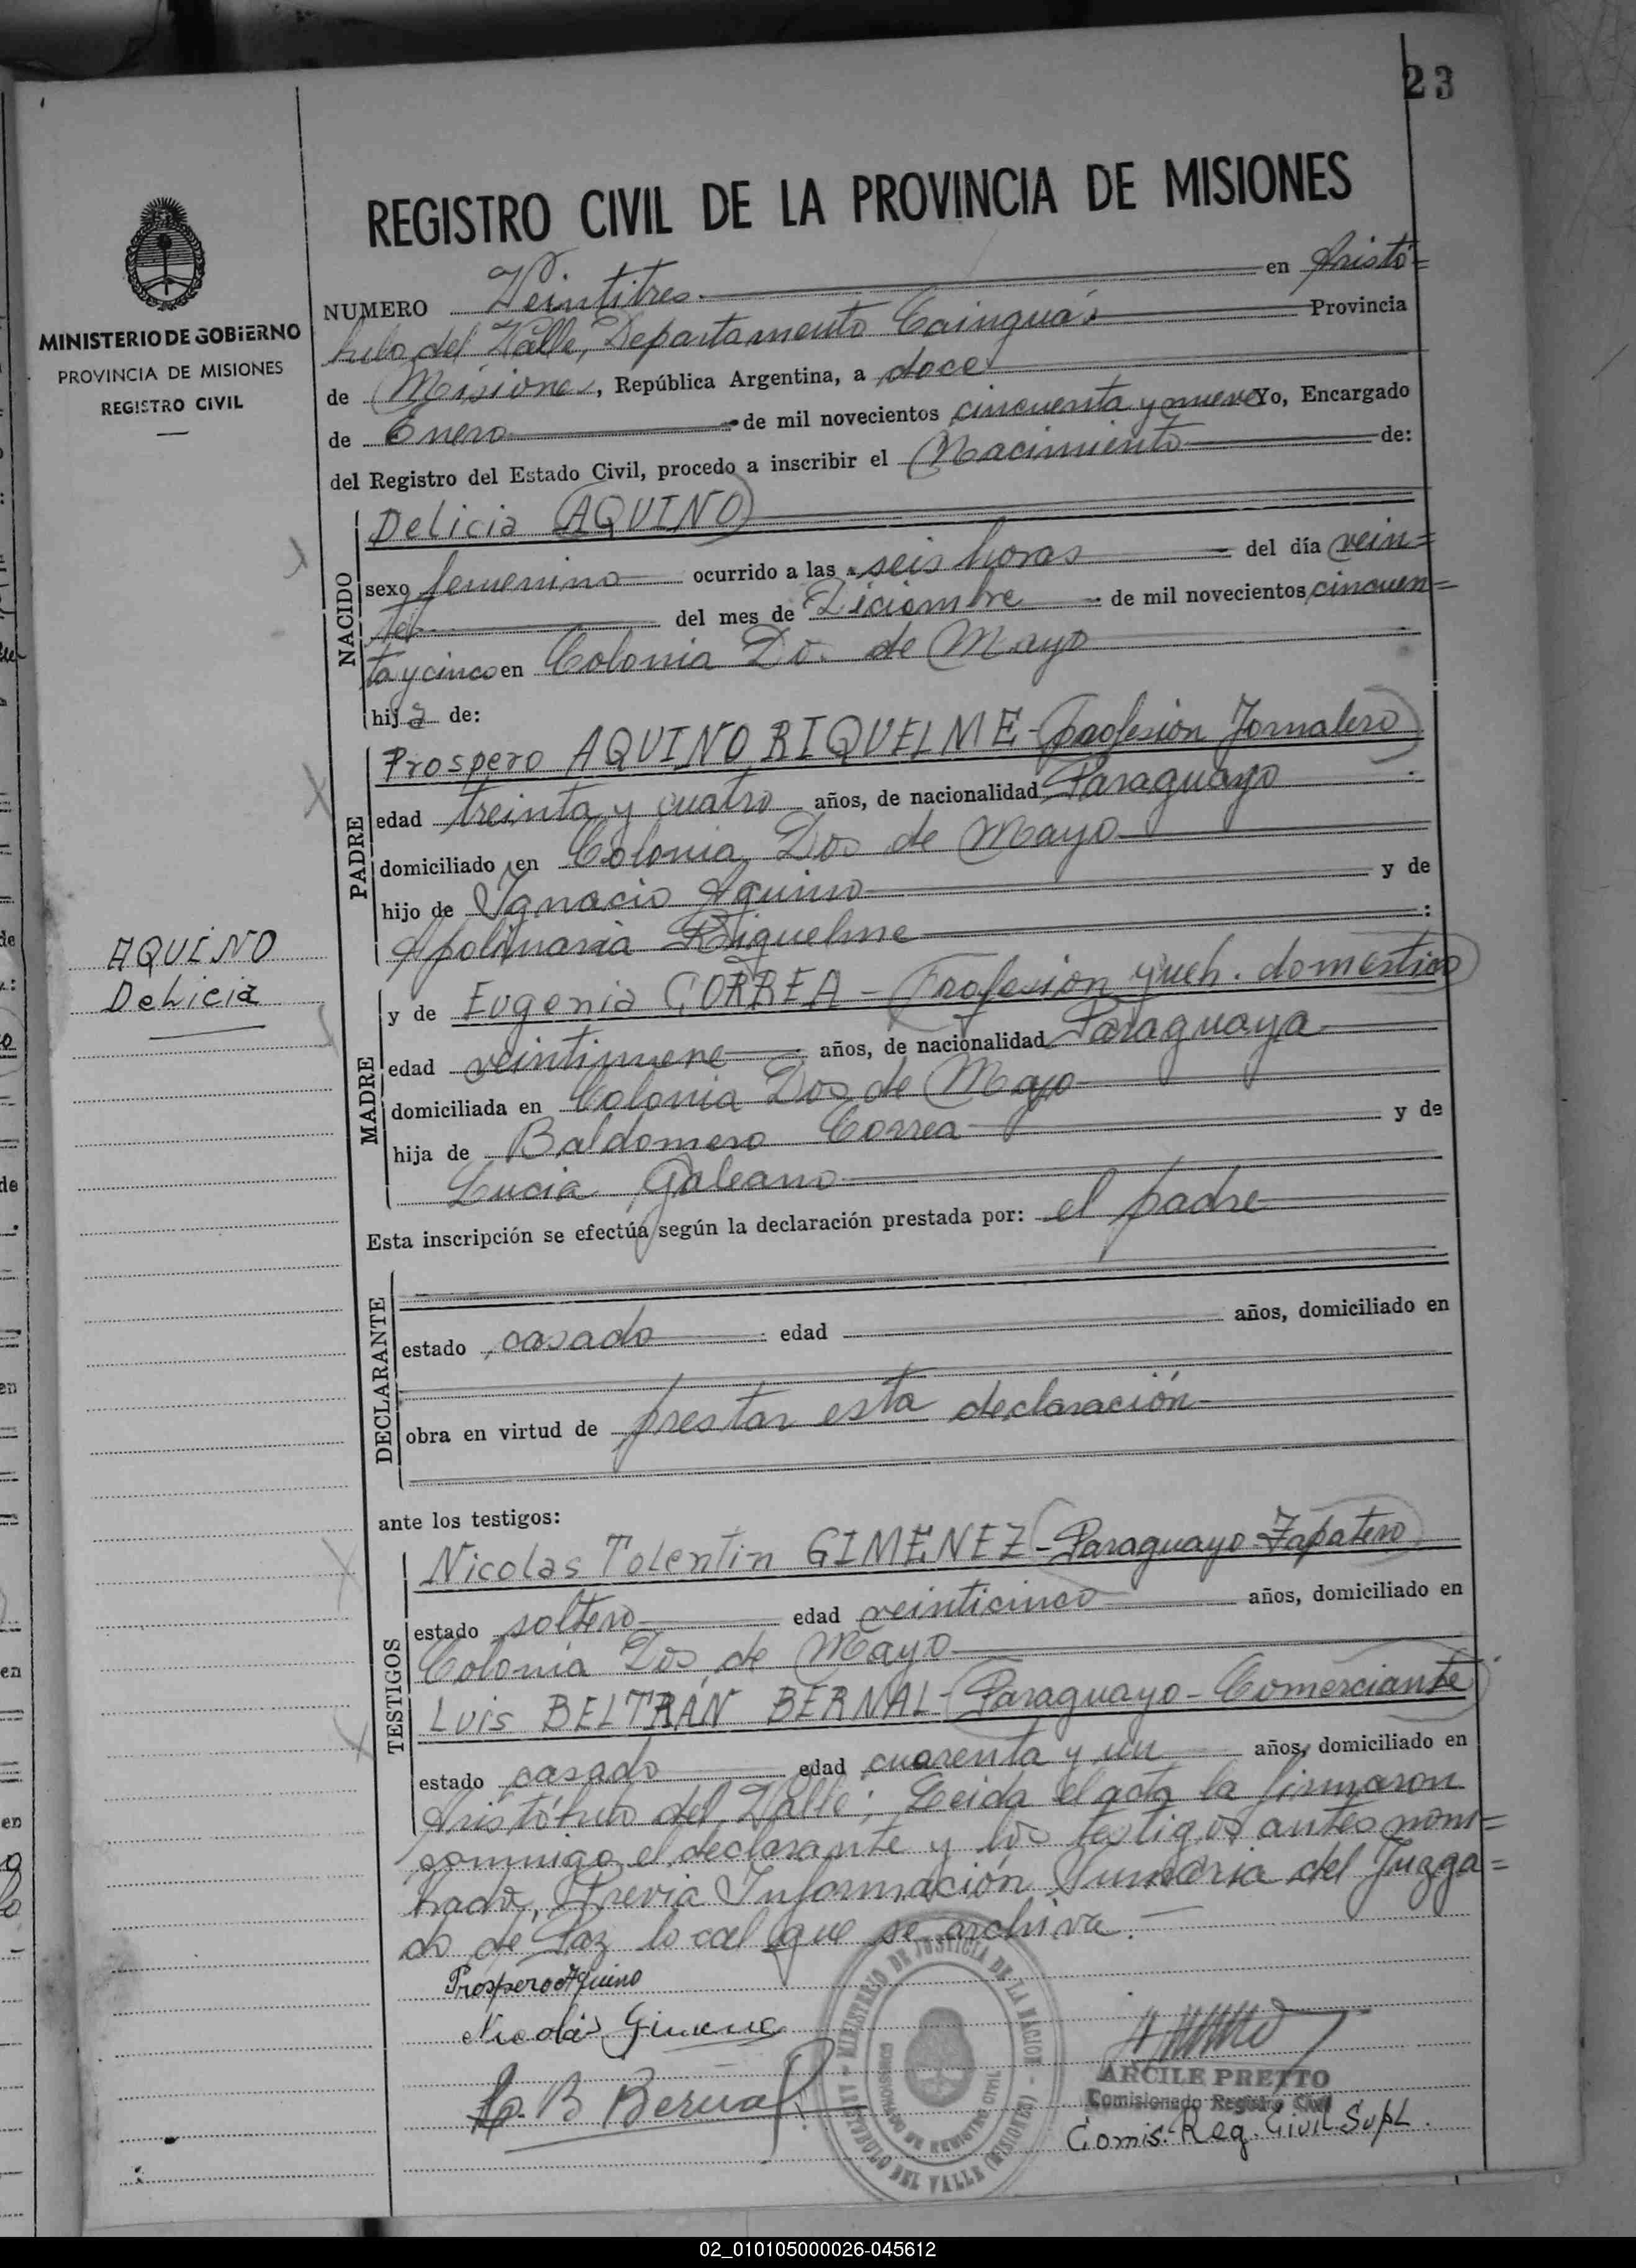 23
REGISTRO CIVIL DE LA PROVINCIA DE MISIONES
MINISTERIO DE GOBIERNO
PROVINCIA DE MISIONES
REGISTRO CIVIL
NUMERO Veintitres. en Aristó=
bulo del Valle, Departamento Cainguás Provincia
de Misiones, República Argentina, a doce
de Enero de mil novecientos cincuenta y nueve Yo, Encargado
del Registro del Estado Civil, procedo a inscribir el Nacimiento de:
NACIDO
Delicia AQUINO
sexo femenino ocurrido a las seis horas del día vein=
te del mes de Diciembre de mil novecientos cincuen=
ta y cinco en Colonia Dos de Mayo
hija de:
PADRE
Prospero AQUINO RIQUELME - profesión Jornalero
edad treinta y cuatro años, de nacionalidad Paraguayo
domiciliado en Colonia Dos de Mayo
hijo de Ignacio Aquino y de
Apolinaria Riquelme :
AQUINO
Delicia
MADRE
y de Eugenia CORREA - Profesión queh. domestico
edad veintinueve años, de nacionalidad Paraguaya
domiciliada en Colonia Dos de Mayo
hija de Baldomero Correa y de
Lucia Galeano
Esta inscripción se efectúa según la declaración prestada por: el padre
DECLARANTE
estado casado edad años, domiciliado en
obra en virtud de prestar esta declaración
ante los testigos:
TESTIGOS
Nicolas Tolentin GIMENEZ - Paraguayo - Zapatero
estado soltero edad veinticinco años, domiciliado en
Colonia Dos de Mayo
Luis BELTRÁN BERNAL - Paraguayo - Comerciante
estado casado edad cuarenta y un años, domiciliado en
Aristóbulo del Valle; Leida el acta la firmaron
conmigo el declarante y los testigos antes nom=
brados, Previa Información Sumaria del Juzga=
do de Paz local que se archiva. -
Prospero Aquino
Nicolás Gimenez
L. B Bernal
MINISTERIO DE JUSTICIA DE LA NACION - ARISTOBULO DEL VALLE (MISIONES)
COMISIONADO DE REGISTRO CIVIL
ARCILE PRETTO
Comisionado Registro Civil
Comis. Reg. Civil Supl.
02_010105000026-045612